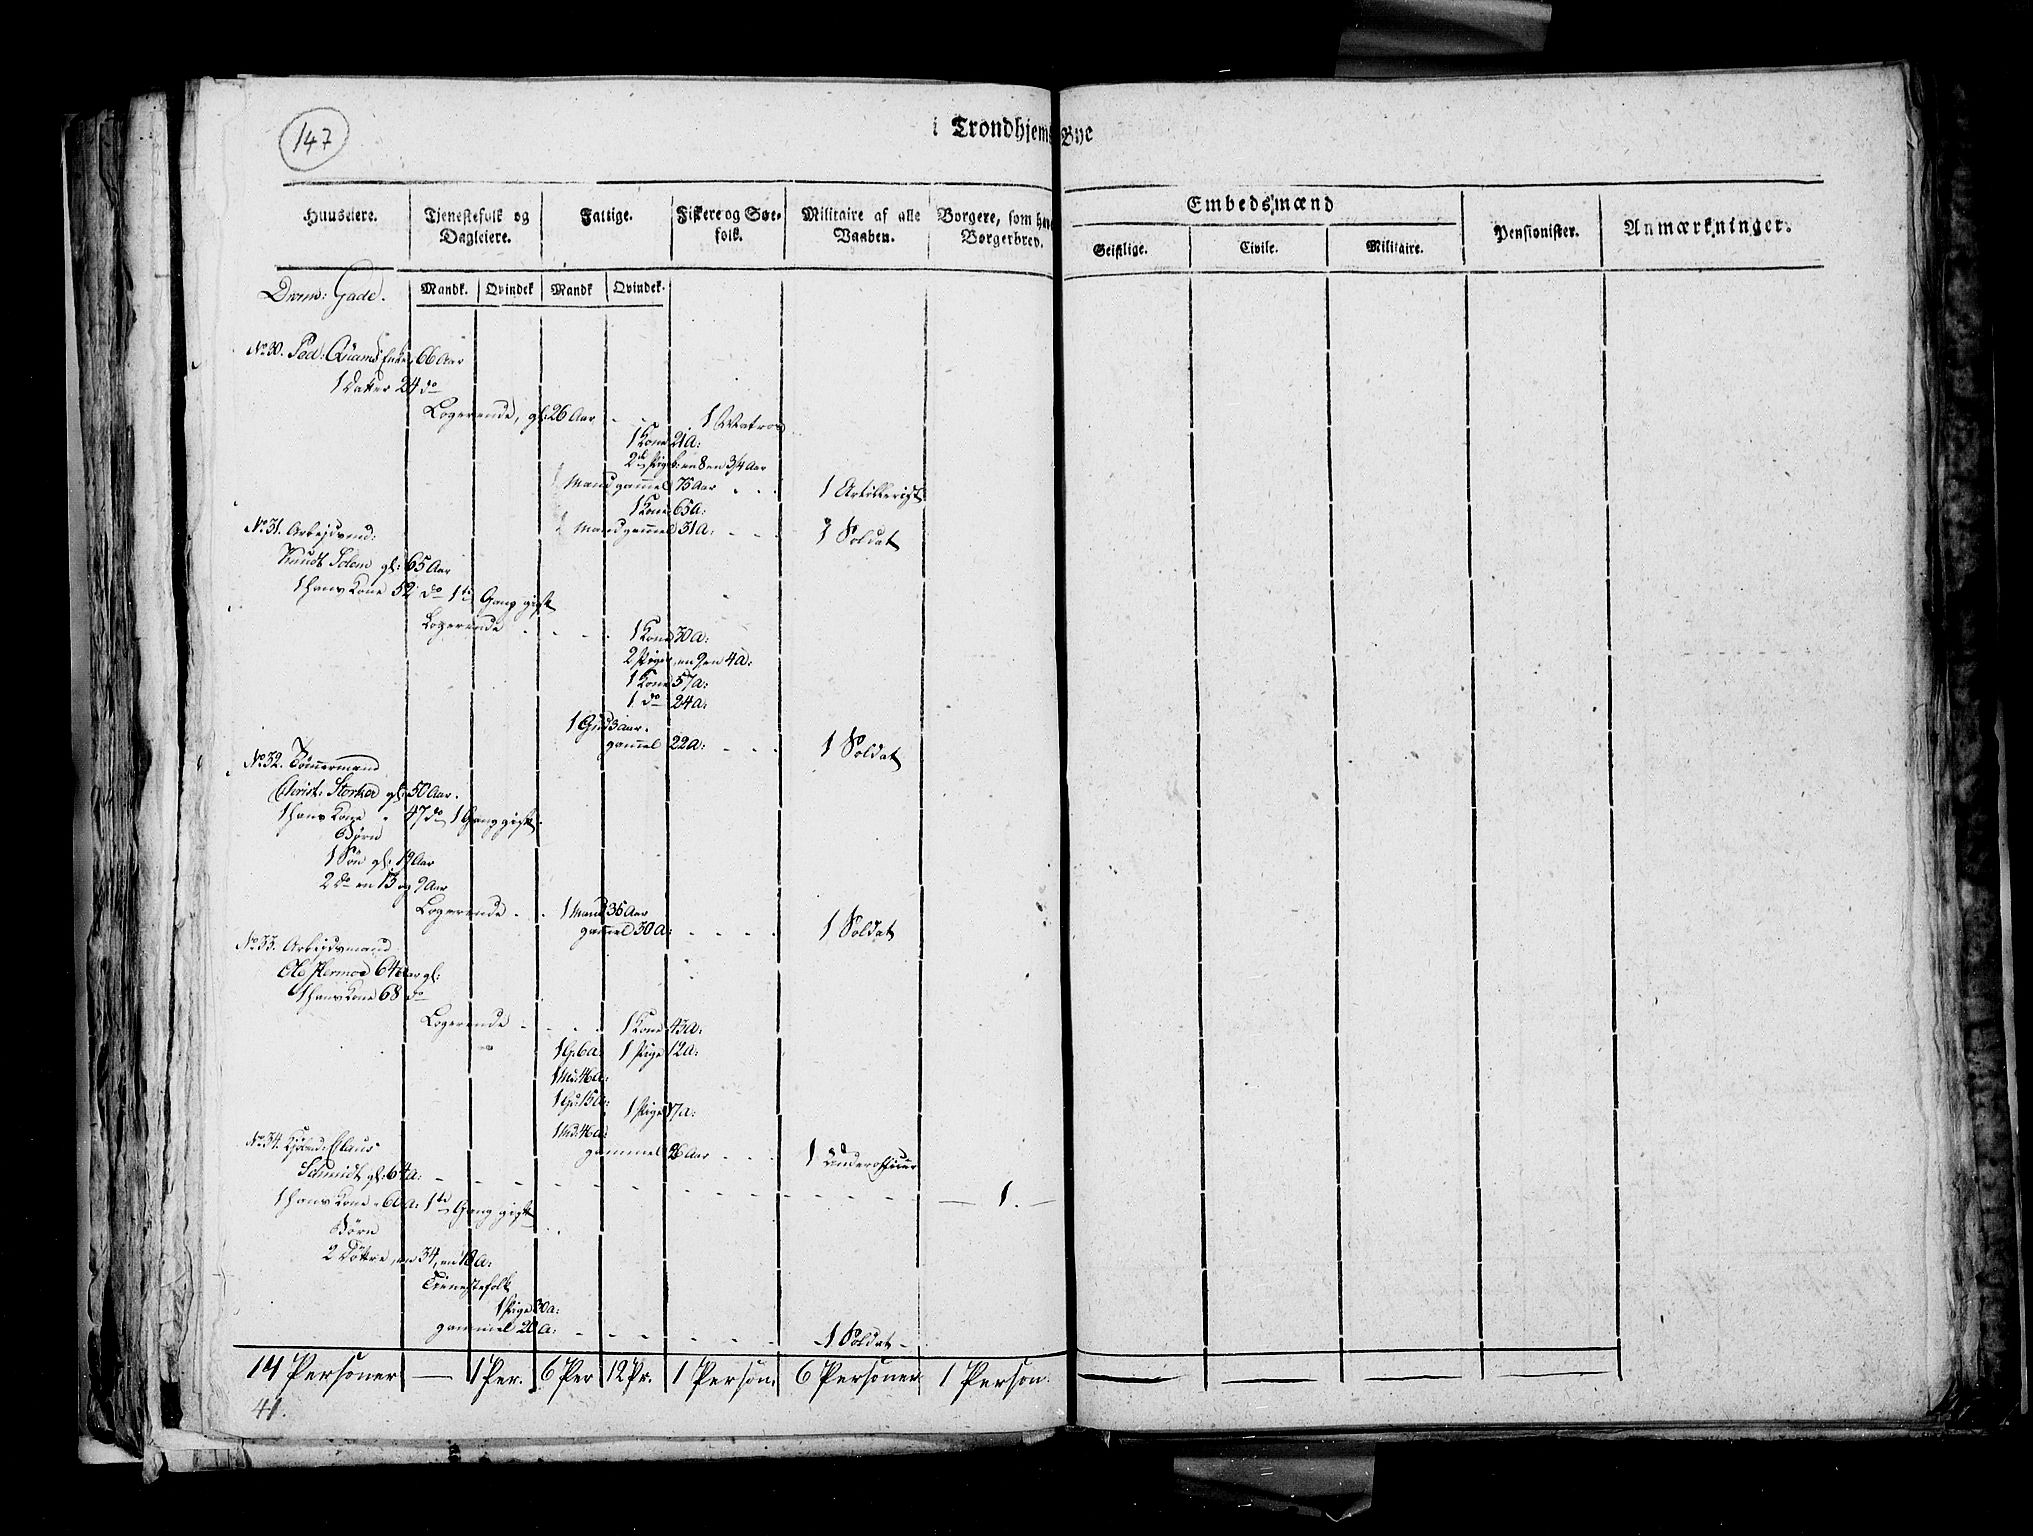 147
i Trondhjems Bye
Huuseiere.
Tjenestefolk og Dagleiere.
Fattige.
Fiskere og Søefolk.
Militaire af alle Vaaben.
Borgere, som have Borgerbrev.
Embedsmænd
Geistlige.
Civile.
Militaire.
Pensionister.
Anmærkninger.
Mandk. Qvindek Mandk Qvindek.
Dron: Gade.
No 30. Ped: Quams Enke 66 Aar
1 Datter 24 do
Logerende, gl: 26 Aar - 1 Matros
1 Kone 21 A:
2de Pigeb: en 8 en 3/4 Aar
1 Mand gammel 75 Aar - - - 1 Artillerist
1 Kone 65 A:
Mand gammel 31 A: - - - 1 Soldat
No 31. Arbejdsmd:
Knudt Solem gl: 65 Aar
1 hans Kone 52 do 1te Gang gift
Logerende - - - - 1 Kone 30 A:
2 Piger, en 9 en 4 A:
1 Kone 57 A:
1 do 24 A:
1 Gut 3 Aar.
gammel 22 A: - - - 1 Soldat
No 32. Tømmermand
Christ: Storker gl: 50 Aar.
1 hans Kone - 47 do 1 Gang gift
Børn
1 Søn gl: 19 Aar
2 do en 13 og 9 Aar
Logerende - - 1 Mand 36 Aar
gammel 30 A: - - - - 1 Soldat
No 33. Arbejdsmand
Ole Hermoe 64 Aar gl:
1 hans Kone 68 do
Logerende - - - - 1 Kone 43 A:
1 G: 6 A: 1 Pige 12 A:
1 Md: 46 A:
1 Gu: 15 A: 1 Pige 17 A:
1 Md: 46 A:
gammel 26 Aar - - - 1 Underofficier
No 34. Kjøbmd: Claus
Schmidt gl: 64 A: - - - - - 1.
1 hans Kone - 60 A: 1te Gang gift
Børn
2 Døttre, en 34, en 18 A:
Tienestefolk
1 Pige 30 A:
gammel 20 A: - - - - - - 1 Soldat -
14 Personer — 1 Per. 6 Per 12 Pr. 1 Person 6 Personer 1 Person.
41.